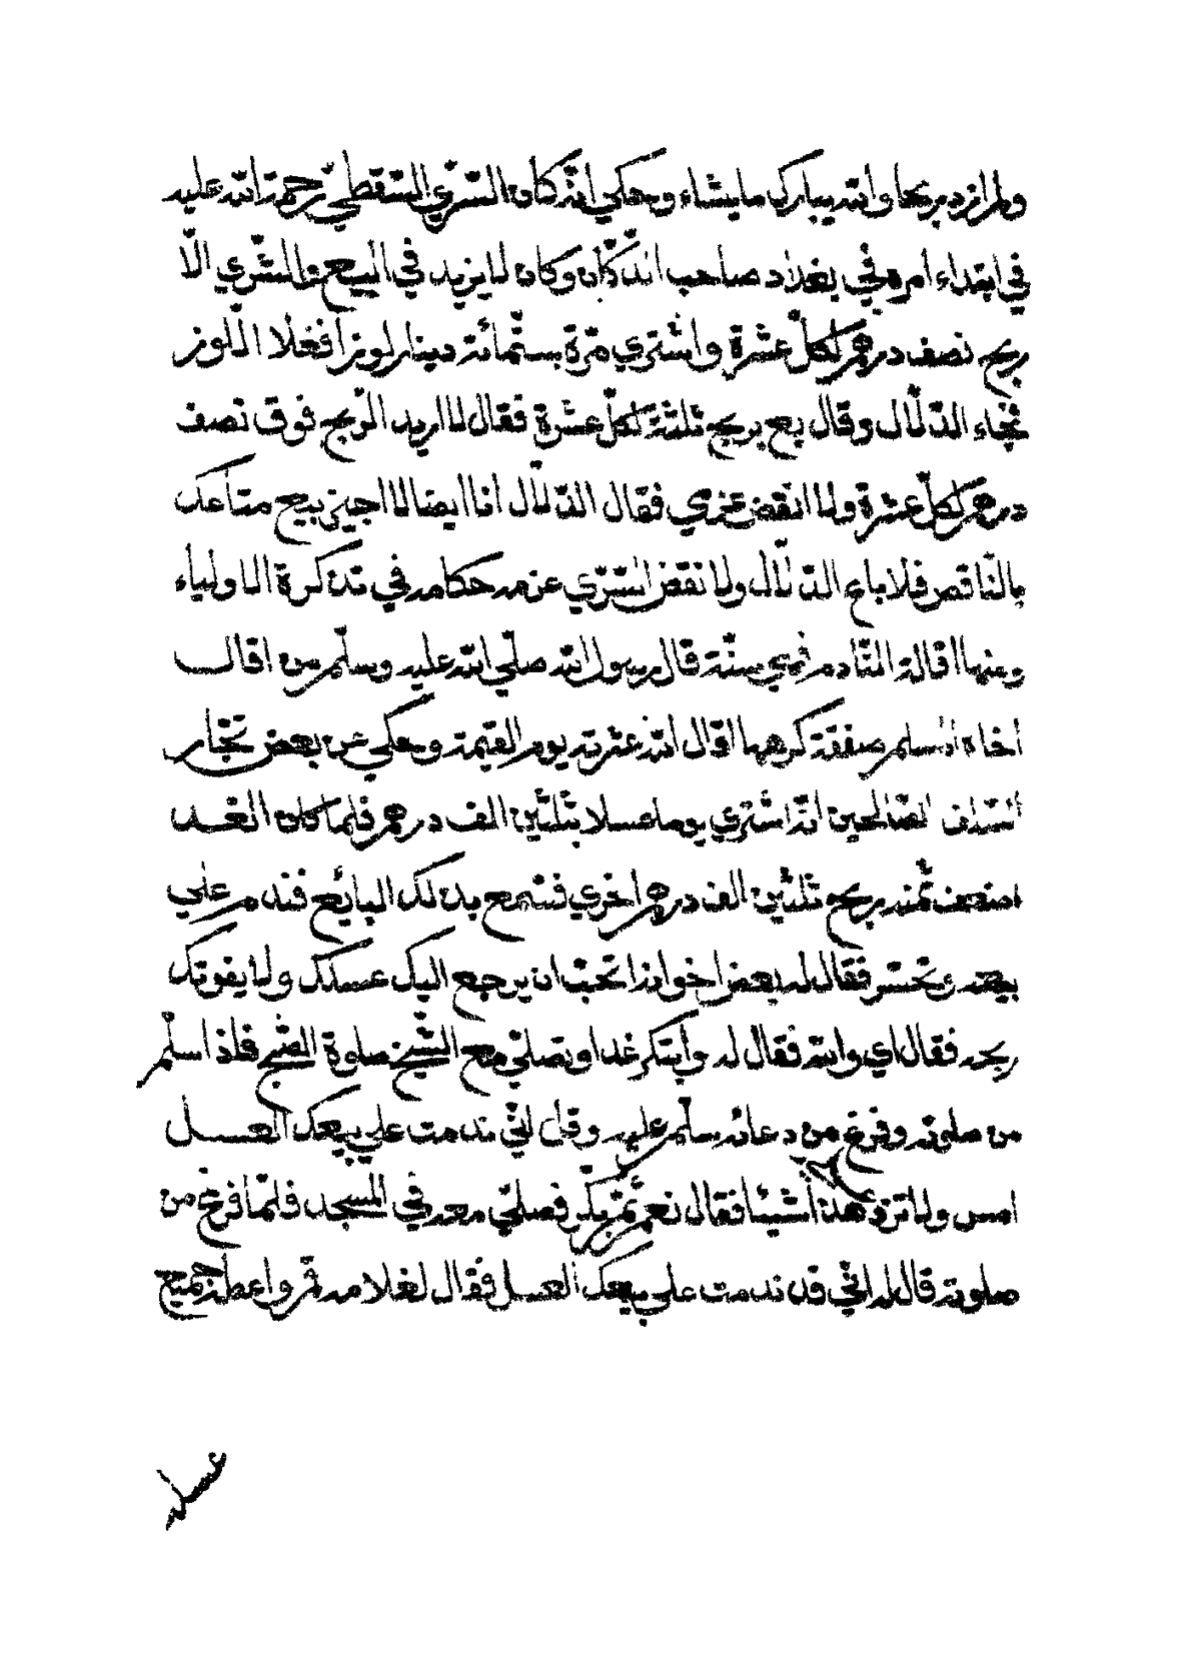 ولم ازد بربحا والله يبارك ما يشاء وحكي انّه كان السّري السّقطيّ رحمة الله عليه
في ابتداء امره في بغداد صاحب الدّكّان وكان لا يزيد في البيع والشّري الّا
بربح نصف درهم لكلّ عشرة واشتري مرّة بستّمائة دينار لوزا فغلا اللّوز
فجاء الدّلّال وقال بع بربح ثلثة لكلّ عشرة فقال لا اريد الرّبح فوق نصف
درهم لكلّ عشرة ولا انقض عزمي فقال الدّلّال انا ايضا لا اجيز بيع متاعك
بالنّاقص فلا باع الدّلّال ولا نقض السّرّي عزمه حكاه في تذكرة الاولياء
ومنها اقالة النّادم فهي سنّة قال رسول الله صلّي الله عليه وسلّم من اقال
اخاه المسلم صفقة كرهها اقال الله عثرته يوم القيمة وحكي عن بعض تجّار
السّلف الصّالحين انّه اشتري يوما عسلا بثلثين الف درهم فلما كان الغد
اضعف ثمنه بربح ثلثين الف درهم اخري فسمع بذلك البايع فندم علي
بيعه وتحسّر فقال له بعض اخوانه اتحبّ ان يرجع اليك عسلك ولا يفوتك
ربحه فقال اي والله فقال له وابتكر غدا وتصلّي مع الشّيخ صلوة الصّبح فاذا سلّم
من صلوته وفرغ من دعائه سلّم عليه وقل انّي ندمت علي بيعك العسل
امس ولا تزد هذا شيئا فقال نعم ثمّ بكّر فصلّي معه في المسجد فلمّا فرغ من
صلوته قال له انّي قد ندمت علي بيعك العسل فقال لغلامه قم واعطه جميع
عسله